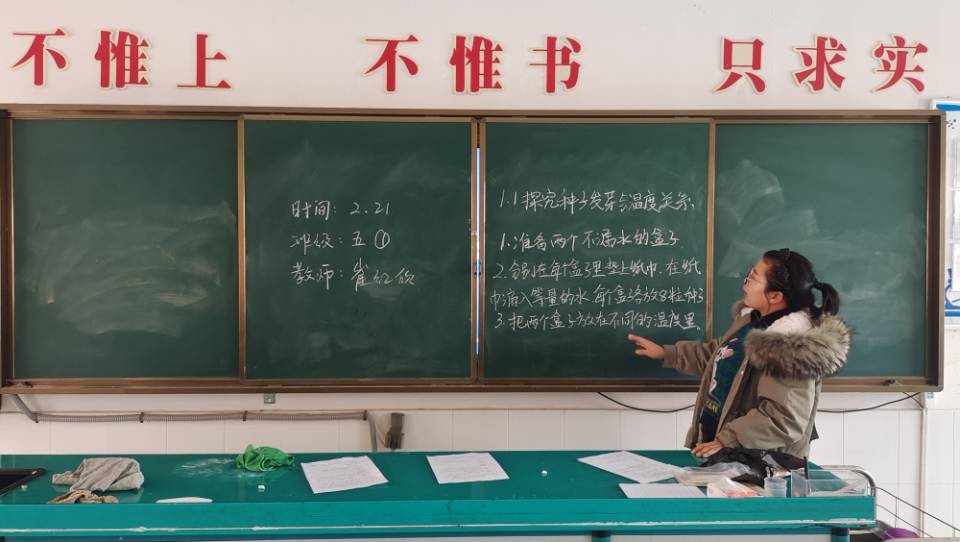 不惟上 不惟书 只求实
时间：2.21
班级：五①
教师：崔红欣
1.1探究种子发芽与温度关系
1.准备两个不漏水的盒子
2.分别在每个盒子里垫上纸巾.在纸
巾滴入等量的水.每个盒子各放8粒种子
3.把两个盒子放在不同的温度里。